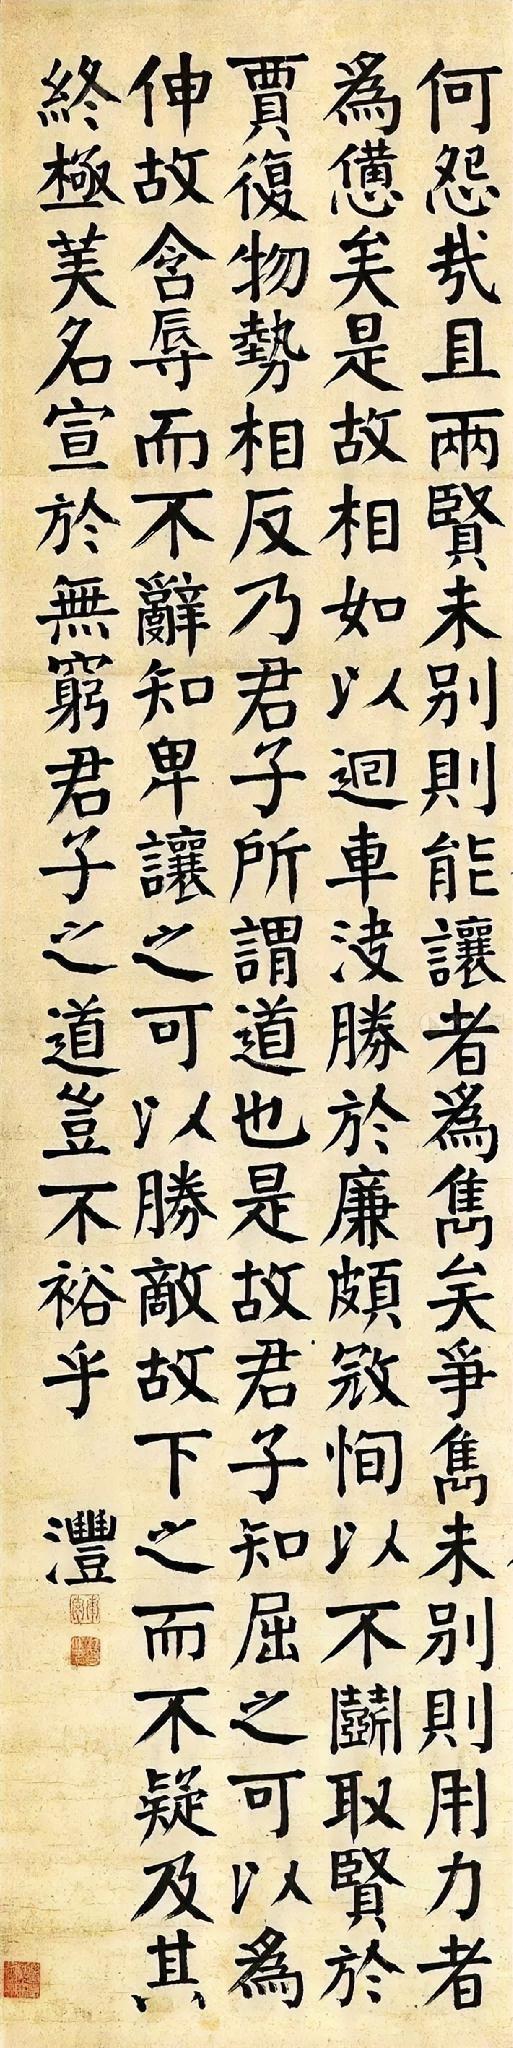 何怨哉且兩賢未別則能讓者爲雋矣爭雋未別則用力者
爲憊矣是故相如以迴車决勝於廉頗寇恂以不鬭取賢於
賈復物勢相反乃君子所謂道也是故君子知屈之可以爲
伸故含辱而不辭知卑讓之可以勝敵故下之而不疑及其
終極美名宣於無窮君子之道豈不裕乎
灃